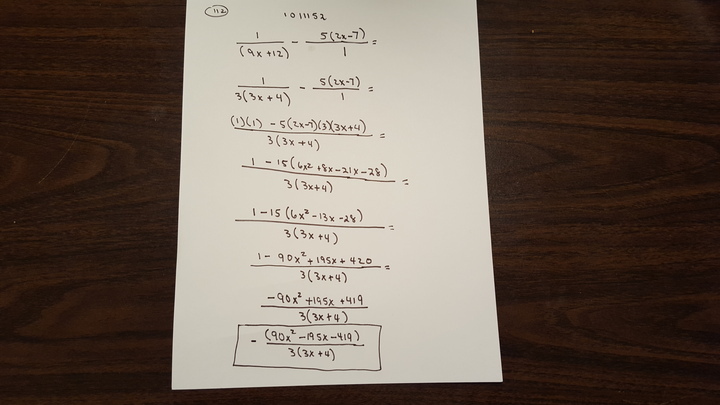 112
1011152
1/(9x+12) - 5(2x-7)/1 =
1/3(3x+4) - 5(2x-7)/1 =
(1)(1) - 5(2x-7)(3)(3x+4)/3(3x+4) =
1 - 15(6x²+8x-21x-28)/3(3x+4) =
1-15(6x²-13x-28)/3(3x+4) =
1- 90x²+195x+420/3(3x+4) =
-90x²+195x+419/3(3x+4)
- (90x²-195x-419)/3(3x+4)